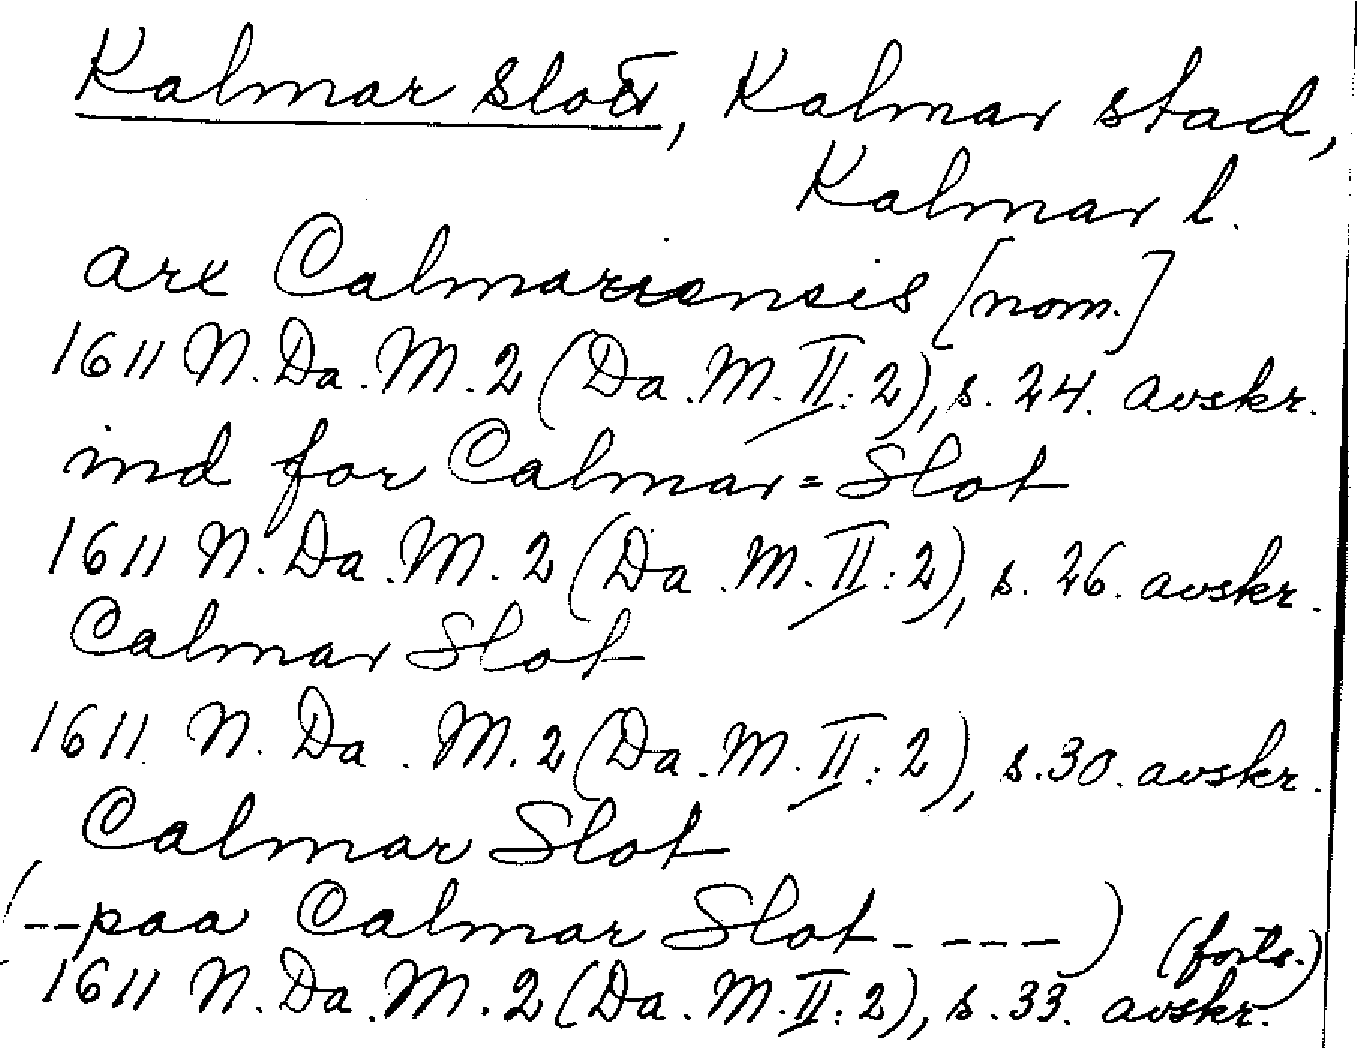 Kalmar slott, Kalmar stad,
Kalmar l.
arx Calmariensis [nom.]
1611 N. Da. M. 2 (Da. M. II: 2), s. 24. avskr.
ind for Calmar=Slot
1611 N. Da. M. 2 (Da. M. II: 2), s. 26. avskr.
Calmar Slot
1611 N. Da. M. 2 (Da. M. II: 2), s. 30. avskr.
Calmar Slot
(--paa Calmar Slot - - - -) (forts.)
1611 N. Da. M. 2 (Da. M. II: 2), s. 33. avskr.